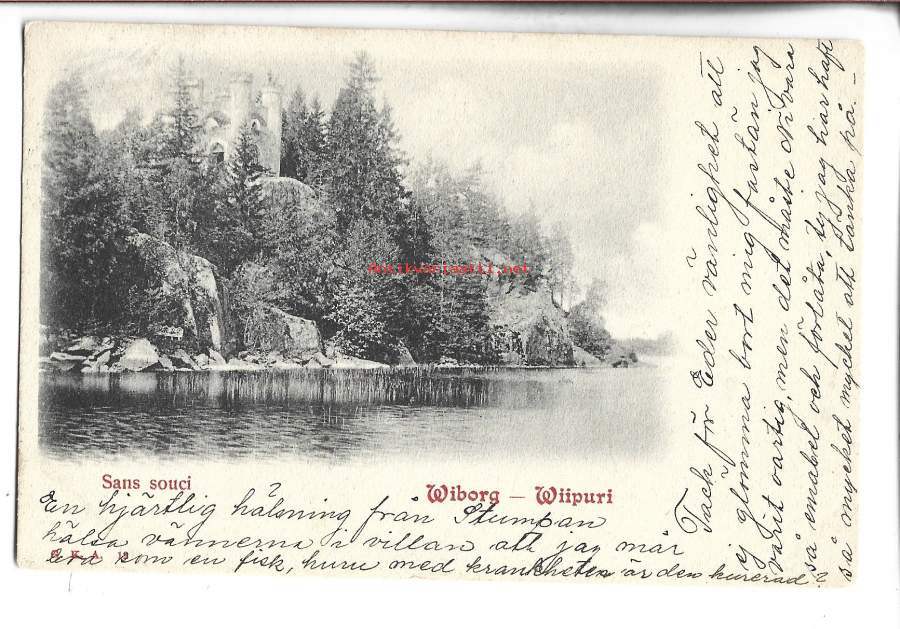 Antikvariaatti.net
Sans souci
Wiborg – Wiipuri
G. K. A. 13
En hjärtlig hälsning från Stumpan
hälsa vännerna i villan att jag mår
bra som en fisk, huru med krankheten är den kurerad?
Tack för Eder vänlighet att
ej glömma bort mig fastän jag
varit vartig, men det måste Ni vara
så amabel och förlåta, ty jag har haft
så mycket mycket att tänka på.–